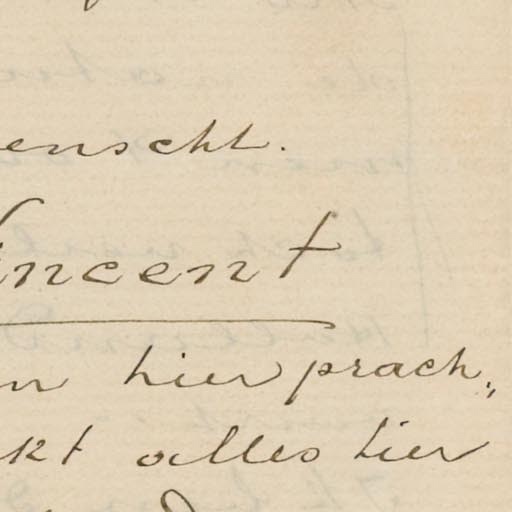 enscht.
incent
en hier prach„
kt alles hier